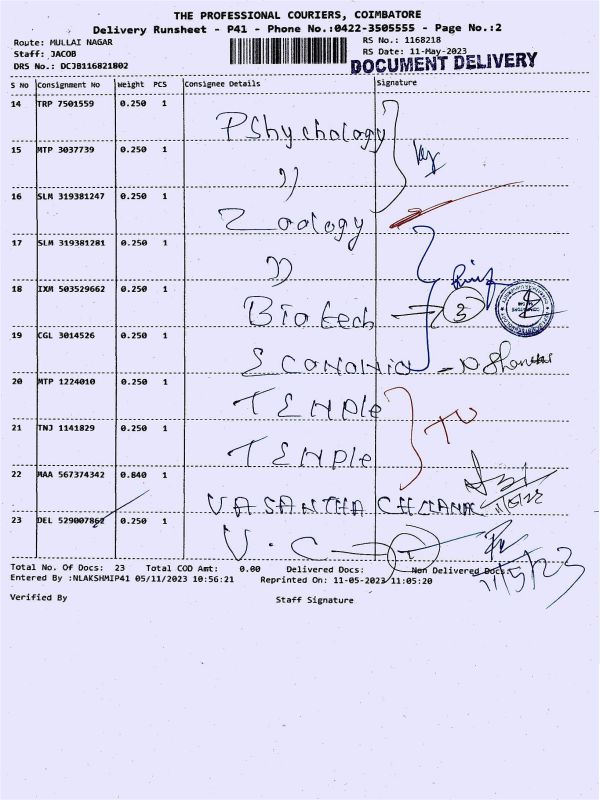 THE PROFESSIONAL COURIERS, COIMBATORE
Delivery Runsheet - P41 - Phone No.:0422-3505555 - Page No.:2
Route: MULLAI NAGAR RS No.: 1168218
Staff: JACOB RS Date: 11-May-2023
DRS No.: DCJB116821802 DOCUMENT DELIVERY
S No Consignment No Weight PCS Consignee Details Signature
14 TRP 7501559 0.250 1 Pshychology
15 MTP 3037739 0.250 1 ))
16 SLM 319381247 0.250 1 Zoology
17 SLM 319381281 0.250 1 ))
18 IXM 503529662 0.250 1 Biotech 3
19 CGL 3014526 0.250 1 Economic
20 MTP 1224010 0.250 1 TEMPle
21 TNJ 1141829 0.250 1 TEMPle
22 MAA 567374342 0.840 1 VASANTHA
23 DEL 529007862 0.250 1 V.C 11/5/23
Total No. Of Docs: 23 Total COD Amt: 0.00 Delivered Docs: Non Delivered Docs:
Entered By :NLAKSHMIP41 05/11/2023 10:56:21 Reprinted On: 11-05-2023 11:05:20
Verified By Staff Signature